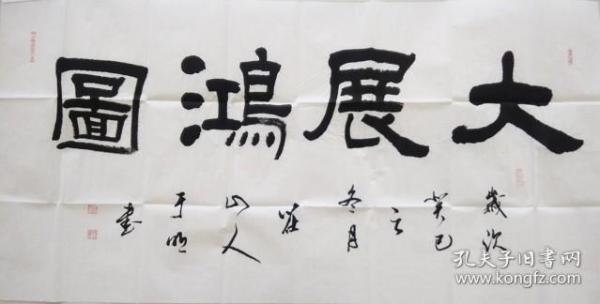 大展鴻圖
歲次
癸巳
之
冬月
山人
于明
書
孔夫子旧书网
www.kongfz.com